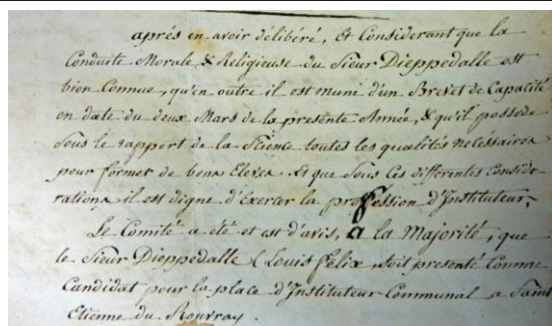 aprés en avoir délibéré, Et Considerant que la
Conduite Morale & Religieuse du Sieur Dieppedalle est
bien Connue, qu'en outre il est muni d'un Brevet de Capacité
en date du deux Mars de la presente Année, & qu'il possede
sous le rapport de la Science toutes les qualités necéssaires
pour former de bons Eleves. Et que sous ces differentes Considé-
rations il est digne d'Exercer la proffession d'Instituteur,
Le Comité a été et est d'avis, a la Majorité, que
le Sieur Dieppedalle (Louis felix, soit presenté Comme
Candidat pour la place d'Instituteur Communal a Saint
Etienne du Rouvray.